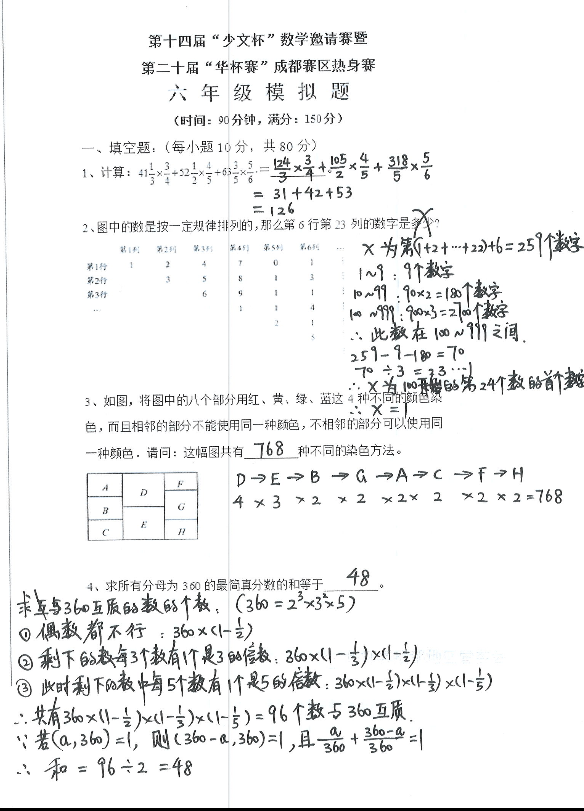 第十四届“少文杯”数学邀请赛暨
第二十届“华杯赛”成都赛区热身赛
六 年 级 模 拟 题
（时间：90分钟，满分：150分）
一、填空题：（每小题10分，共80分）
1、计算：41 1/3 × 3/4 + 52 1/2 × 4/5 + 63 3/5 × 5/6 = 124/3 × 3/4 + 105/2 × 4/5 + 318/5 × 5/6
= 31+42+53
= 126
2、图中的数是按一定规律排列的，那么第6行第23列的数字是多少？
X
第1列 第2列 第3列 第4列 第5列 第6列 …
第1行 1 2 4 7 0 1
第2行 3 5 8 1 3
第3行 6 9 1 1
… 1 1 4
2 1
5
X 为第(1+2+…+22)+6=259个数字
1~9：9个数字
10~99：90×2=180个数字
100~999：900×3=2700个数字
∴ 此数在100~999之间.
259-9-180=70
70÷3=23…1
∴ X 为100开始的第24个数的首个数字
∴ X = 1
3、如图，将图中的八个部分用红、黄、绿、蓝这4种不同的颜色染
色，而且相邻的部分不能使用同一种颜色，不相邻的部分可以使用同
一种颜色．请问：这幅图共有 768 种不同的染色方法。
A D F
B G
C E H
D→E→B→G→A→C→F→H
4×3×2×2×2×2×2×2=768
4、求所有分母为360的最简真分数的和等于 48 。
求与360互质的数的个数：(360=2³×3²×5)
① 偶数都不行：360×(1-1/2)
② 剩下的数每3个数有1个是3的倍数：360×(1-1/3)×(1-1/2)
③ 此时剩下的数中每5个数有1个是5的倍数：360×(1-1/2)×(1-1/3)×(1-1/5)
∴共有360×(1-1/2)×(1-1/3)×(1-1/5)=96个数与360互质.
∵若(a,360)=1，则(360-a,360)=1，且 a/360 + (360-a)/360 =1
∴ 和 = 96÷2 = 48